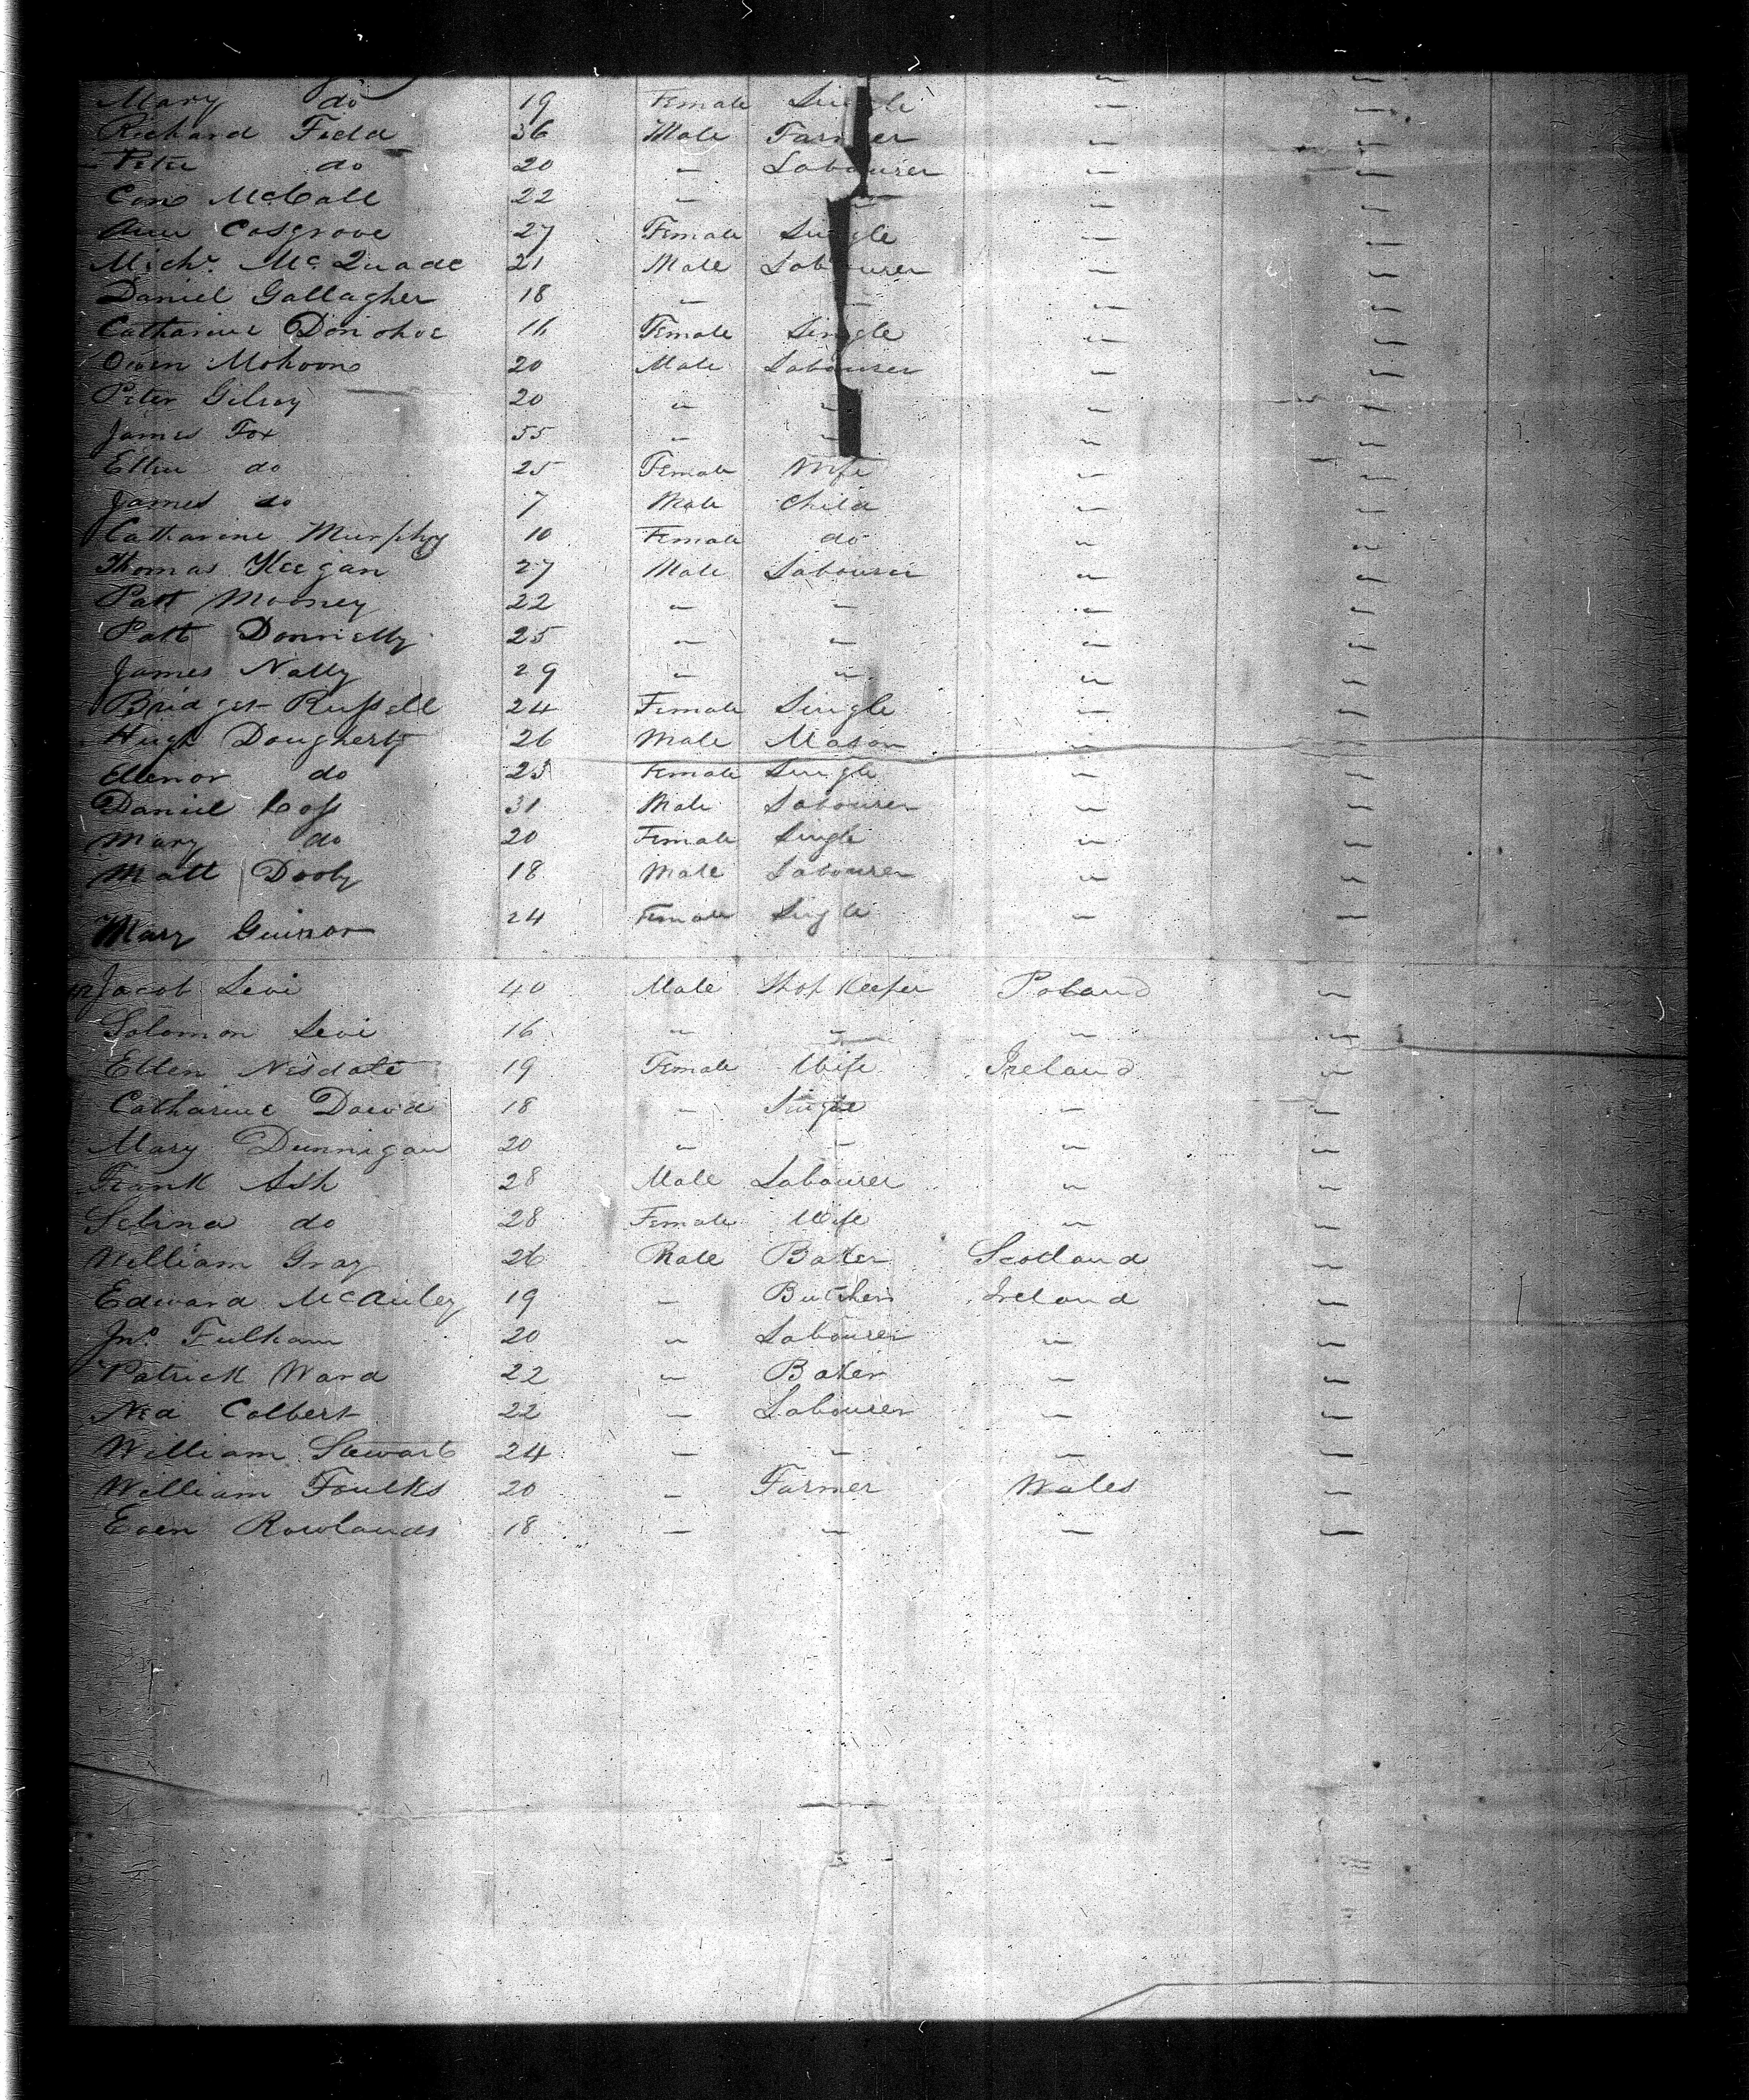 Mary do 19 Female Single " "
Richard Field 36 Male Farmer " "
Peter do 20 " Labourer " "
Con McCall 22 " " " "
Ann Cosgrove 27 Female Single " "
Michl. McQuade 21 Male Labourer " "
Daniel Gallagher 18 " " " "
Catharine Donohoe 16 Female Single " "
Owen Mohoon 20 Male Labourer " "
Peter Gilroy 20 " " " "
James Fox 55 " " " "
Ellen do 25 Female Wife " "
James do 7 Male Child " "
Catharine Murphy 10 Female do " "
Thomas Keegan 27 Male Labourer " "
Patt Mooney 22 " " " "
Patt Donnelly 25 " " " "
James Nally 29 " " " "
Bridget Russell 24 Female Single " "
Hugh Dougherty 26 Male Mason " "
Ellenor do 25 Female Single " "
Daniel 31 Male Labourer " "
Mary do 20 Female Single " "
Matt Dooly 18 Male Labourer " "
Mary 24 Female Single " "
Jacob Levi 40 Male Shop Keeper Poland "
Solomon Levi 16 " " " "
Ellen Nesdale 19 Female Wife Ireland "
Catharine David 18 " Single " "
Mary Dunnigan 20 " " " "
Frank Ash 28 Male Labourer " "
Selina do 28 Female Wife " "
William Gray 26 Male Baker Scotland "
Edward McAuley 19 " Butcher Ireland "
Jno. Fulham 20 " Labourer " "
Patrick Ward 22 " Baker " "
Ned Colbert 22 " Labourer " "
William Stewart 24 " " " "
William Foulks 20 " Farmer Wales "
Even Rowlands 18 " " " "